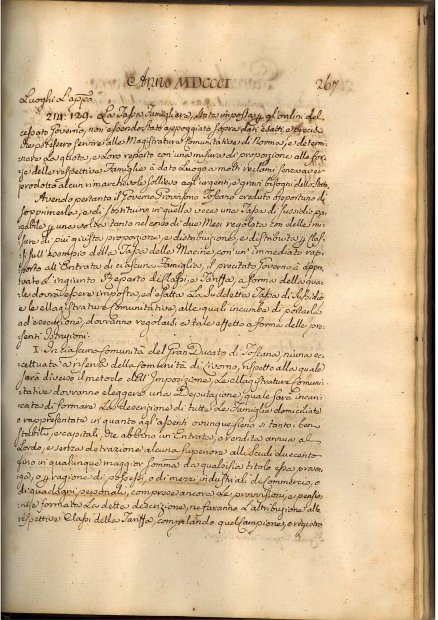 Anno MDCCCI 267
Luoghi d'app.
214: 129. La Tassa Famigliare, stata imposta agl'ordini del
cessato Governo, non essendo stata appoggiata sopra dati esatti, e precisi
che potessero servire alle Magistrature Comunitative di Norma, e determi-
nare la quota, e loro reparto con una misura di proporzione alle for-
ze delle respettive Famiglie à dato luogo a molti reclami senza aver
prodotto alcun marchevole sollievo agl'urgenti, e gravi bisogni dello Stato.
Avendo pertanto il Governo Provvisorio Toscano creduto opportuno di
sopprimerla, e di sostituire in quella vece una Tassa di sussidio pa-
gabile una volta tanto nel corso di due Mesi regolata con delle mi-
sure di più giusta proporzione, e distribuzione, e distribuita Clas-
si sull'esempio della Tassa delle Macine, con un immediato rap-
porto all'Entrata di ciascuna Famiglia, il precitato Governo à appro-
vato l'ingiunto Reparto di Classi, e Tariffa, a forma della qua-
le dovrà essere imposta, ed esatta la suddetta Tassa di sussidio
e le Magistrature Comunitative, alle quali incombe di portarla
ad esecuzione, dovranno regolarsi a tale effetto a forma delle pre-
senti Istruzioni.
I. In ciascuna Comunità del Gran Ducato di Toscana, niuna ec-
cettuata a riserva della Comunità di Livorno, rispetto alla quale
sarà diverso il metodo dell'Imposizione, le Magistrature Comuni-
tative dovranno eleggere una Deputazione quale sarà incari-
cata di formare la descrizione di tutte le Famiglie domiciliate
o rappresentate in quanto agl'assenti ovunque sieno, o tanto i ben
stabili, o capitali, che abbino un Entrata, o rendita annua al
Lordo, e senza detrazione alcuna superiore alli Scudi duecento
fino in qualunque maggior somma da qualsisia titolo essa proven-
ga, o a ragione di possessi, o di merzi, industriali, di Commercio, o
di guadagni personali, comprese ancora le provvisioni, e pensio-
ni, e formata la detta descrizione, ne faranno l'attribuzione alle
respettive Classi della Tariffa, compilando quel Campione, o registro